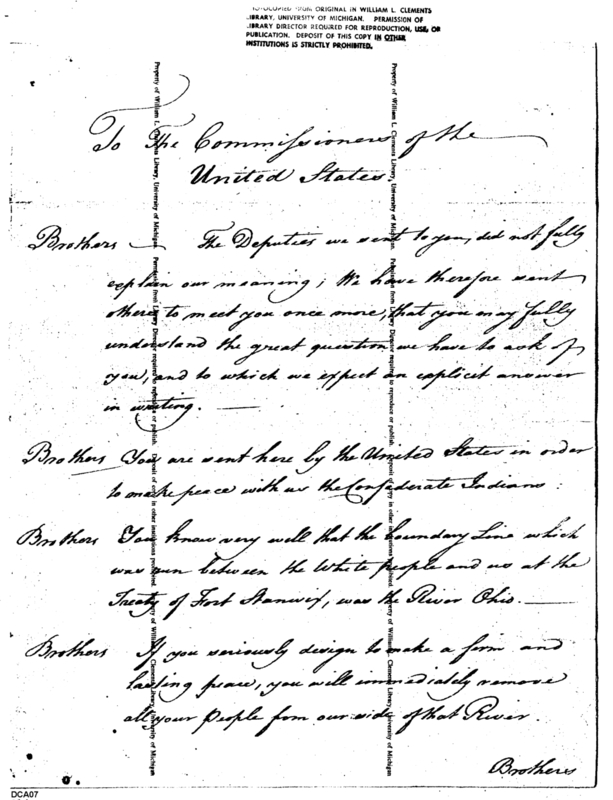 TO-OCOPIED FROM ORIGINAL IN WILLIAM L. CLEMENTS
LIBRARY, UNIVERSITY OF MICHIGAN. PERMISSION OF
LIBRARY DIRECTOR REQUIRED FOR REPRODUCTION, USE, OR
PUBLICATION. DEPOSIT OF THIS COPY IN OTHER
INSTITUTIONS IS STRICTLY PROHIBITED.
To The Commissioners of the
United States
Brothers — The Deputies we sent to you, did not fully
explain our meaning; We have therefore sent
others to meet you once more, that you may fully
understand the great question we have to ask of
you, and to which we expect an explicit answer
in writing. —
Brothers You are sent here by the United States in order
to make peace with us the Confederate Indians:
Brothers You know very well that the boundary Line which
was run between the White people and us at the
Treaty of Fort Stanwix, was the River Ohio. —
Brothers If you seriously design to make a firm and
lasting peace, you will immediately remove
all your People from our side of that River.
Brothers
Property of William L. Clements Library, University of Michigan. Permission from Library Director required to reproduce or publish. Deposit of copy in other institutions prohibited.
Property of William L. Clements Library, University of Michigan
Property of William L. Clements Library, University of Michigan. Permission from Library Director required to reproduce or publish. Deposit of copy in other institutions prohibited.
Property of William L. Clements Library, University of Michigan
DCA07